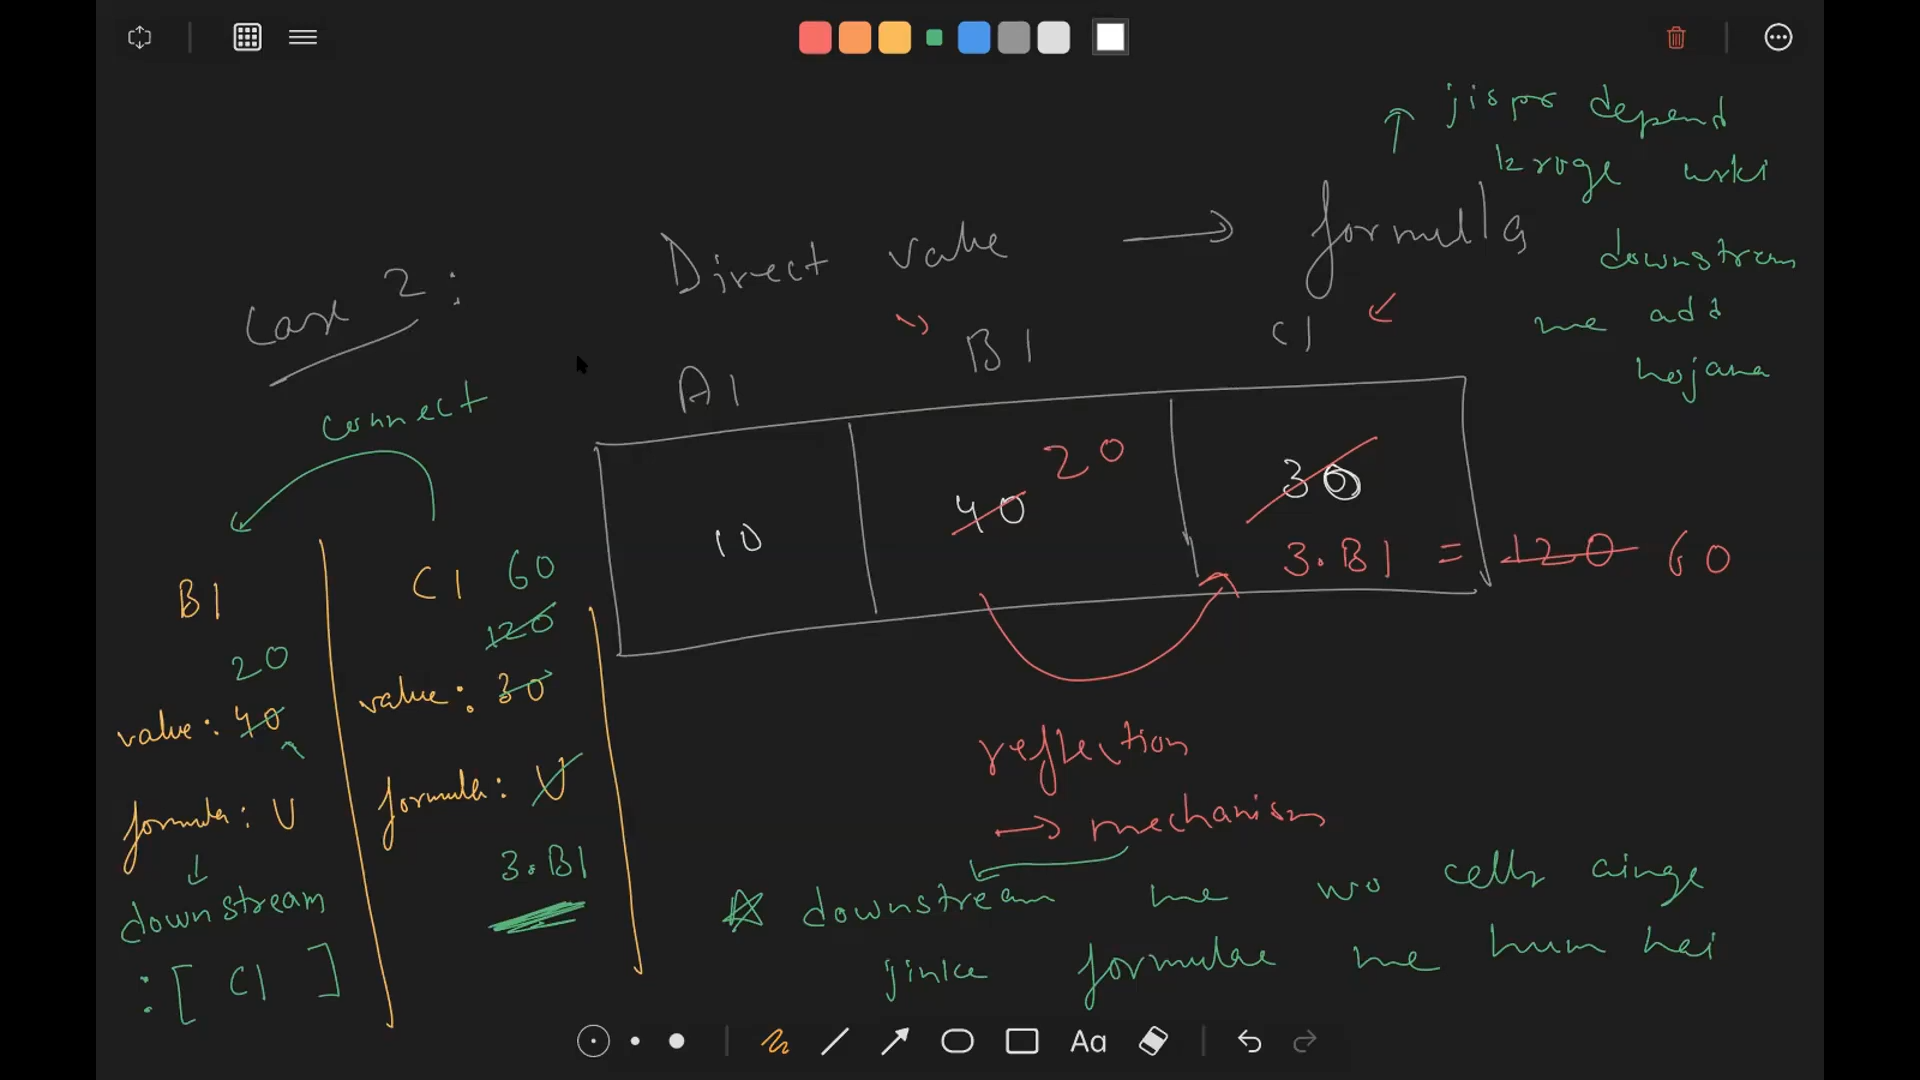 jispr depend
kroge uski
downstream
me add
hojana
Case 2:
Direct value → formula
A1
B1
C1
connect
10
40
20
30
3.B1 = 120 60
B1
20
value: 40
formula: U
downstream
: [ C1 ]
C1
60
120
value: 30
formula: U
3.B1
reflection
→ mechanism
☆ downstream me wo cells ainge
jinke formulae me hum hai
Aa